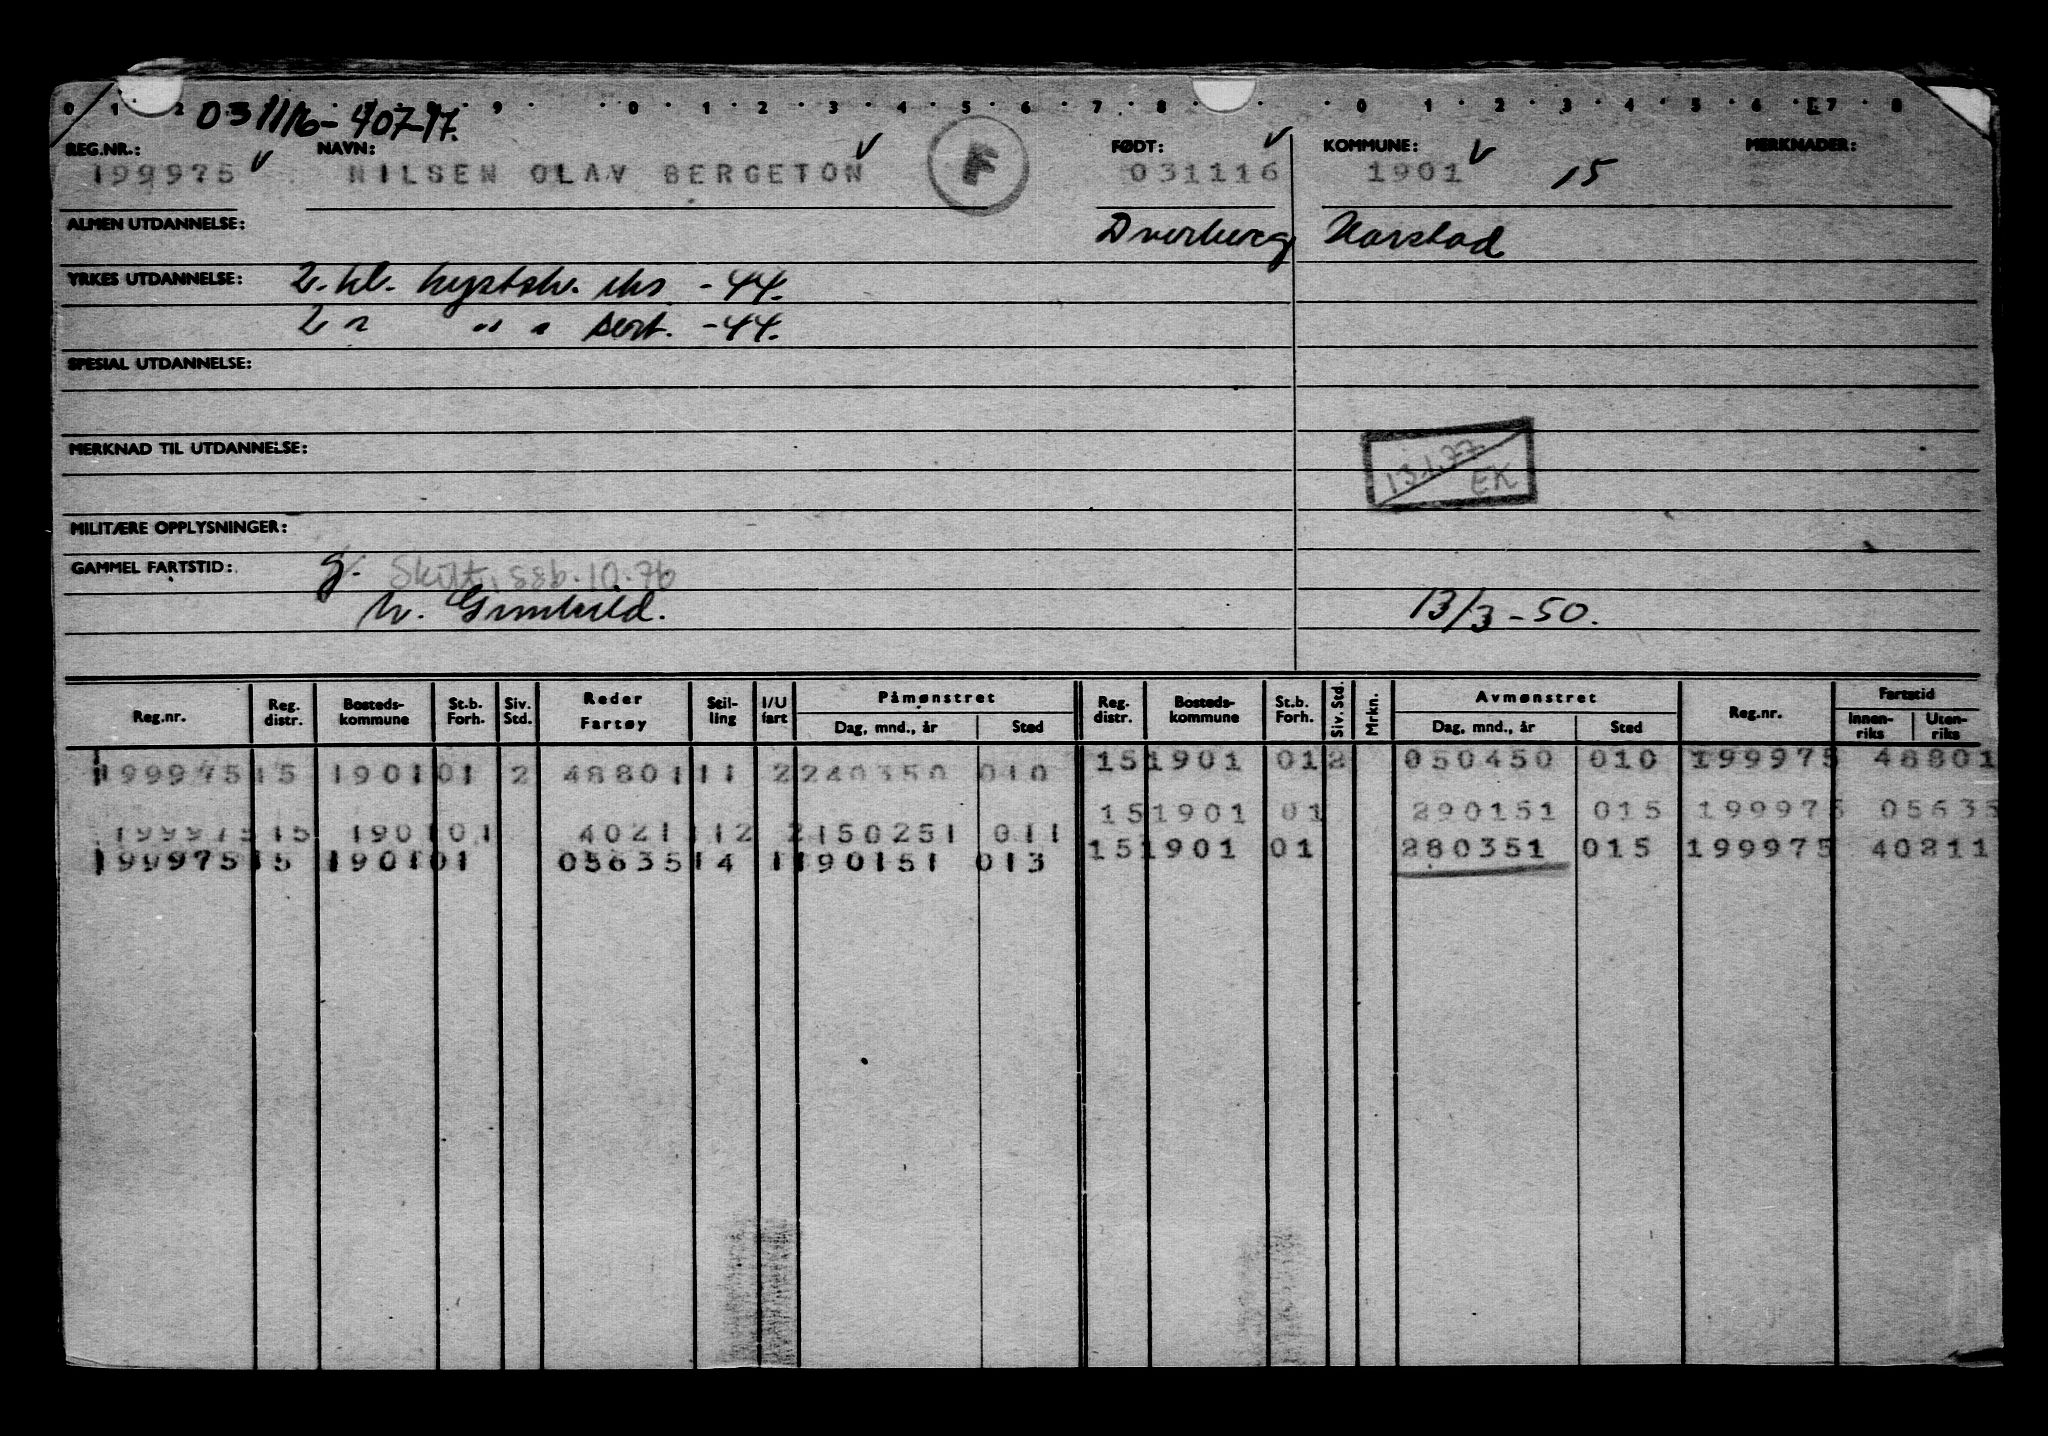 0 1 2 9 0 1 2 3 4 5 6 7 8 0 1 2 3 4 5 6 E7 8
031116-40717.
REG.NR.: NAVN: FØDT: KOMMUNE: MERKNADER:
199975 NILSEN OLAV BERGETON F 031116 1901 15
ALMEN UTDANNELSE: Dverberg Harstad
YRKES UTDANNELSE: 2. kl. kystsk. eks -44.
2 " " " sert. -44.
SPESIAL UTDANNELSE:
MERKNAD TIL UTDANNELSE:
13.1.77 EK
MILITÆRE OPPLYSNINGER:
GAMMEL FARTSTID: g. Skilt, ssb. 10.76
13/3-50.
Reg.nr. Reg. distr. Bosteds-kommune St.b. Forh. Siv. Std. Reder Fartøy Stil-ling I/U fart Påmønstret Dag, mnd., år Sted Reg. distr. Bosteds-kommune St.b. Forh. Siv. Std. Mrkn. Avmønstret Dag, mnd., år Sted Reg.nr. Fartstid Innen-riks Uten-riks
199975 15 1901 01 2 48801 11 2 240350 010 15 1901 01 2 050450 010 199975 48801
15 1901 01 290151 015 199975 05635
199975 15 1901 01 40211 12 2 150251 011
199975 15 1901 01 05635 14 1 190151 013 15 1901 01 280351 015 199975 40211